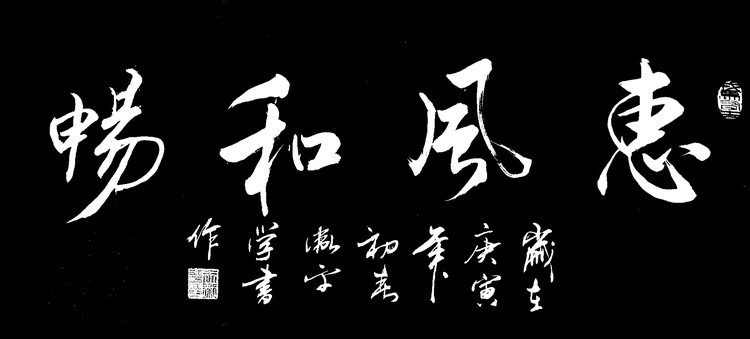 惠風和暢
歲在
庚寅
年
初春
学書
作